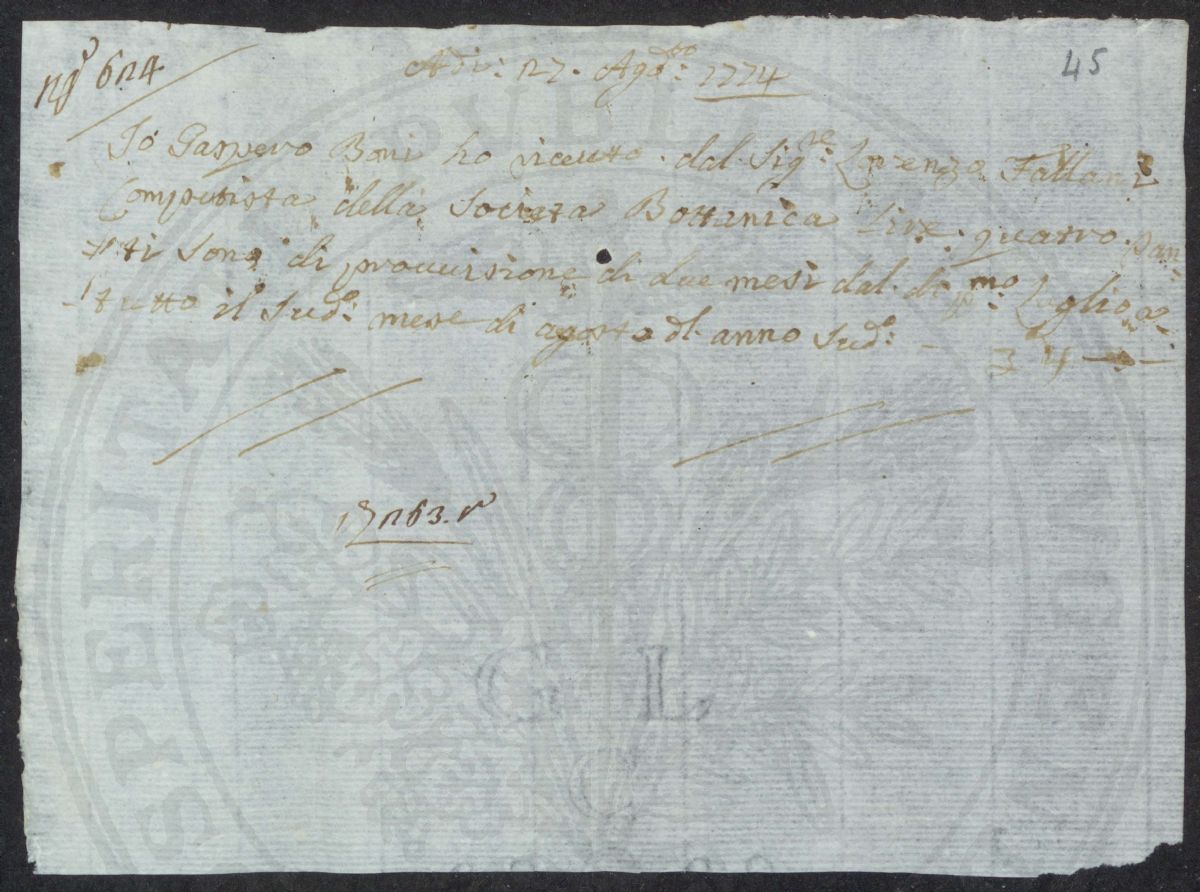 N.º 624
45
Adi: 27. Agosto: 1774
Io Gaspero Boni ho riceuto dal Sig.re Lorenzo Fallani
Computista della Societa Bottanica Lire quatro
ti sono di prouuisione di due mesi dal di p.mo Luglio a
tutto il Sud.º mese di agosto dl. anno Sud.º — 4 —
263.